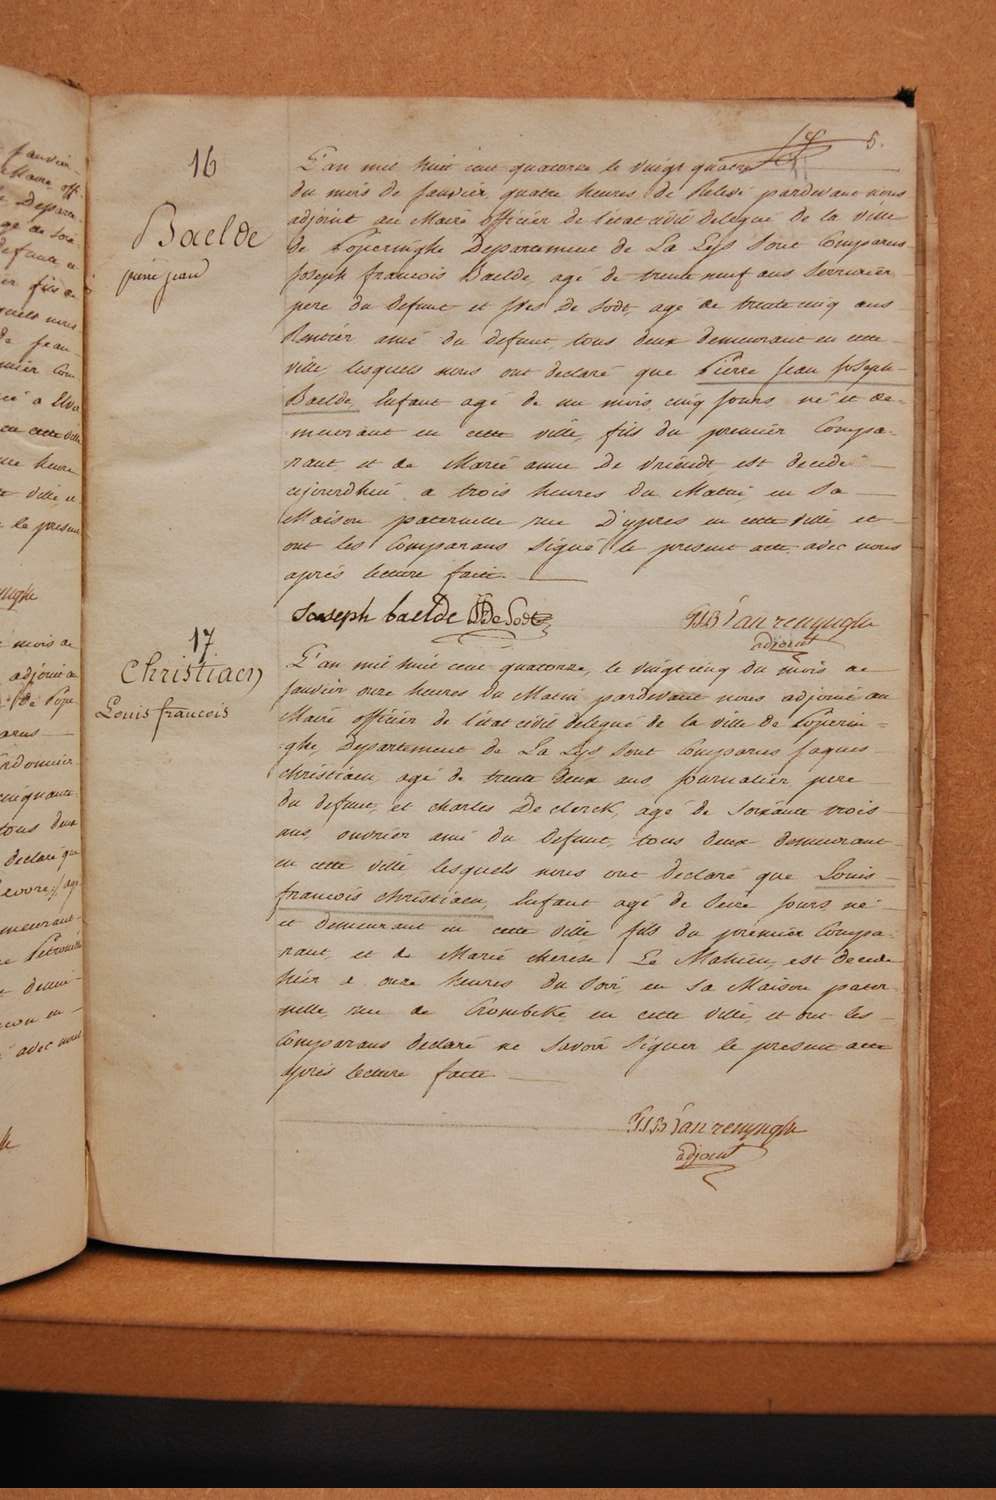 5.
16
Baelde
pierre jean
L'an mil huit cent quatorze le vingt quatre
du mois de Janvier, quatre heures de Relevé pardevant nous
adjoint au Maire officier de l'etat civil delegué de la ville
de Poperinghe Departement de La Lys Sont Comparus
Joseph francois Baelde, agé de trente neuf ans Serrurier
pere du defunt et Yves De Sodt, agé de trente cinq ans
Rentier ami du defunt, tous deux demeurant en cette
ville lesquels nous ont declaré que Pierre Jean Joseph
Baelde, Enfant agé de un mois, cinq Jours né et de-
meurant en cette ville, fils du premier Compa-
rant, et de Marie anne De Vriendt est decedé
aujourdhui a trois heures du Matin, en Sa
Maison paternelle rue D'ypres en cette ville, et
ont les Comparans Signé le present acte, avec nous
aprés lecture faite.
Joseph baelde De Sodt
Van renynghe
adjoint
17
Christiaen
Louis francois
L'an mil huit cent quatorze, le vingt cinq du mois de
Janvier onze heures du Matin pardevant nous adjoint au
Maire officier de l'etat civil delegué de la ville de Poperin=
ghe, Departement de La Lys Sont Comparus Jaques
christiaen, agé de trente deux ans, Journalier, pere
du defunt, et charles De clerck, agé de Soixante trois
ans, ouvrier ami du defunt, tous deux demeurant
en cette ville lesquels nous ont declaré que Louis
francois christiaen, Enfant agé de Seize Jours né
et demeurant en cette ville, fils du premier Compa-
rant, et de Marie therese Le Mahieu, est decedé
hier a onze heures du Soir, en Sa Maison pater-
nelle, rue de Crombeke, en cette ville, et ont les
Comparans declaré ne Savoir Signer le present acte
aprés lecture faite
Van renynghe
adjoint